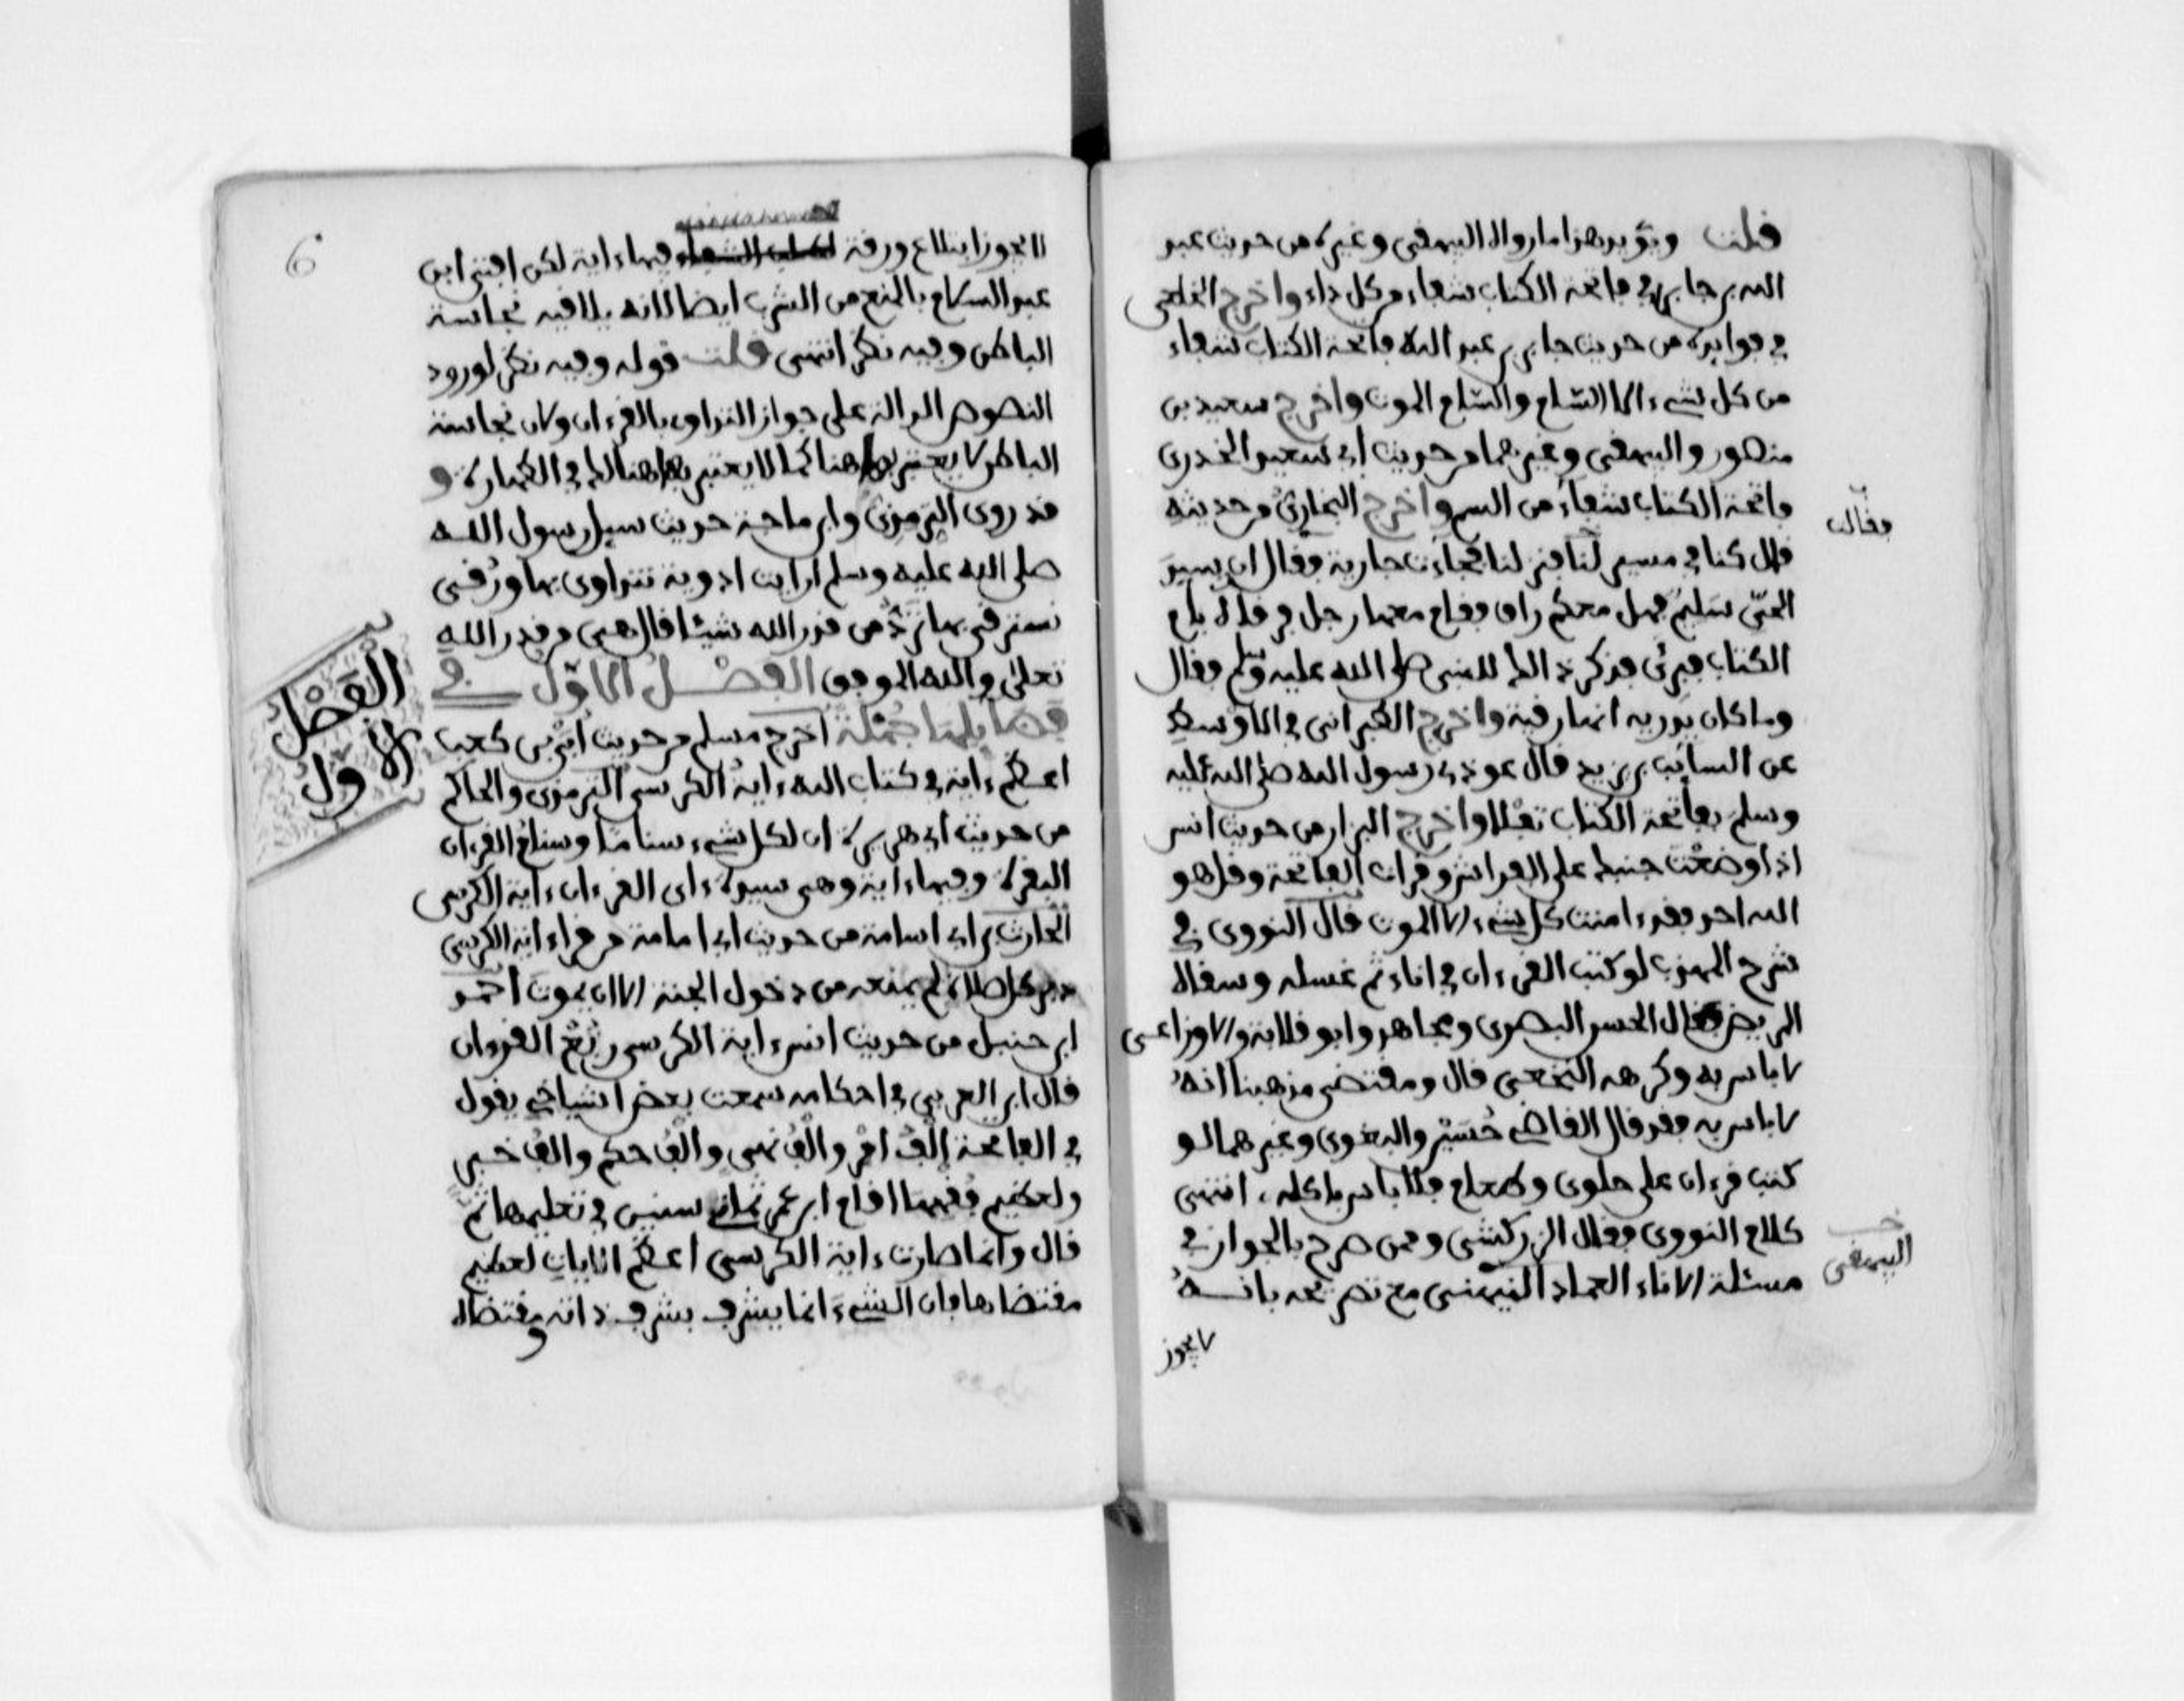 قلت ويؤيد هذا ما رواه البيهقي وغيره من حديث عبد
الله بن جابر في فاتحة الكتاب شفاء من كل داء واخرج الخلعي
في فوايده من حديث جابر بن عبد الله فاتحة الكتاب شفاء
من كل شيء الا السّام والسّام الموت واخرج سعيد بن
منصور والبيهقي وغيرهما من حديث ابي سعيد الخدري
فاتحة الكتاب شفاء من السم واخرج البخاري من حديثه
فقالت
قال كنا في مسير لنا فنزلنا فجاءت جارية فقال ان سيد
الحيّ سليم فهل معكم راق فقام معها رجل فرقاه بام
الكتاب فبرئ فذكر ذالك للنبي صلى الله عليه وسلم فقال
وما كان يدريه انها رقية واخرج الطبراني في الاوسط
عن السائب بن يزيد قال عوذني رسول الله صلى الله عليه
وسلم بفاتحة الكتاب تفلا واخرج البزار من حديث انس
اذا وضعت جنبك على الفراش وقرات الفاتحة وقل هو
الله احد فقد ءامنت كل شيء الا الموت قال النووي في
شرح المهذب لو كتب القرءان في اناء ثم غسله وسقاه
المريض فقال الحسن البصري ومجاهد وابو قلابة والاوزاعي
لا باس به وكرهه النخعي قال ومقتضى مذهبنا انه
لا باس به فقد قال القاضي حُسَيْن والبغوي وغيرهما لو
كتب قرءان على حلوى وطعام فلا باس باكله، انتهى
كلام النووي فقال الزركشي وممن صرح بالجواز في
البيهقي
مسئلة الاناء العماد النيهي مع تصريحه بانه
لا يجوز
6
لا يجوز ابتلاع ورقة فيها ءاية لكن افتى ابن
عبد السلام بالمنع من الشرب ايضا لانه يلاقيه نجاسة
الباطن وفيه نظر انتهى قلت قوله وفيه نظر لورود
النصوص الدالة على جواز التداوي بالقرءان ولان نجاسة
الباطن لا يعتبر بها هنا كما لا يعتبر بها هنالك في الطهارة و
قد روى الترمذي وابن ماجة حديث سيل رسول الله
صلى الله عليه وسلم ارايت ادوية نتداوى بها ورُقى
نسترقي بها تردُّ من قدر الله شيئا قال هي من قدر الله
تعلى والله الموفق الفصل الاوّل في
الفَصْل
الاول
فضايلها جُمْلة اخرج مسلم من حديث أُبَيّ بن كعب
اعظم ءاية في كتاب الله ءاية الكرسي الترمذي والحاكم
من حديث ابي هريرة ان لكل شيء سناما وسنام القرءان
البقرة وفيها ءاية وهي سيدة ءاي القرءان ءاية الكرسي
الحارث بن ابي اسامة من حديث ابي امامة من قرا ءاية الكرسي
دبر كل صلاة لم يمنعه من دخول الجنة الا ان يموت أحمد
ابن حنبل من حديث انس ءاية الكرسي رُبُعُ القرءان
قال ابن العربي في احكامه سمعت بعض اشياخي يقول
في الفاتحة الْفُ امْر والْفُ نهي والْفُ حكم والفُ خبر
ولعظيم فقهها اقام ابن عمر ثماني سنين في تعليمها ثم
قال وانما صارت ءاية الكرسي اعظم الايات لعظيم
مقتضاها فان الشيء انما يشرف بشرف ذاته ومقتضاه